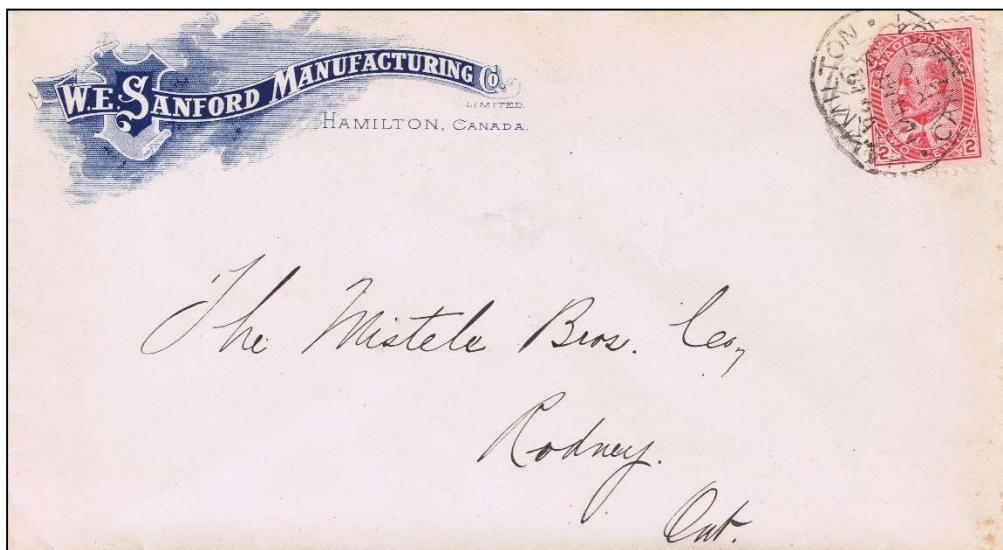 W.E. SANFORD MANUFACTURING Co.
LIMITED.
HAMILTON, CANADA.
HAMILTON
CANADA
CANADA POSTAGE
2 2
The Mistele Bros. Co,
Rodney.
Ont.